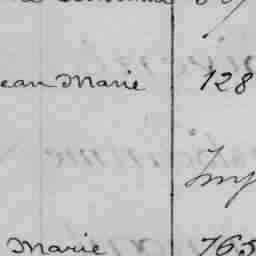 ean Marie 128
Imp
Marie 765